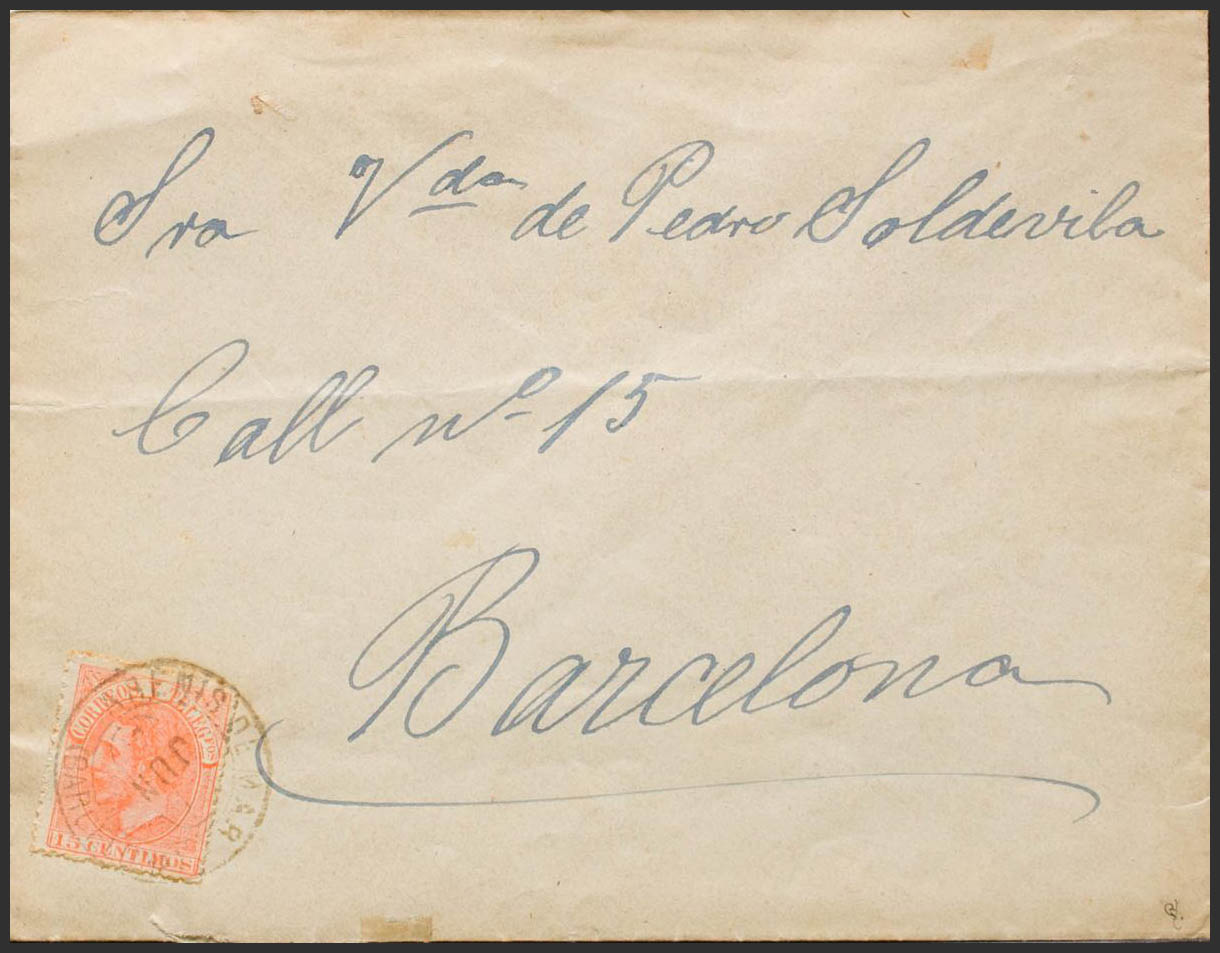 Sra Vda de Pedro Soldevila
Call nº 15
Barcelona
CORREOS Y TELEGFOS
15 CENTIMOS
DE MAR
JUN